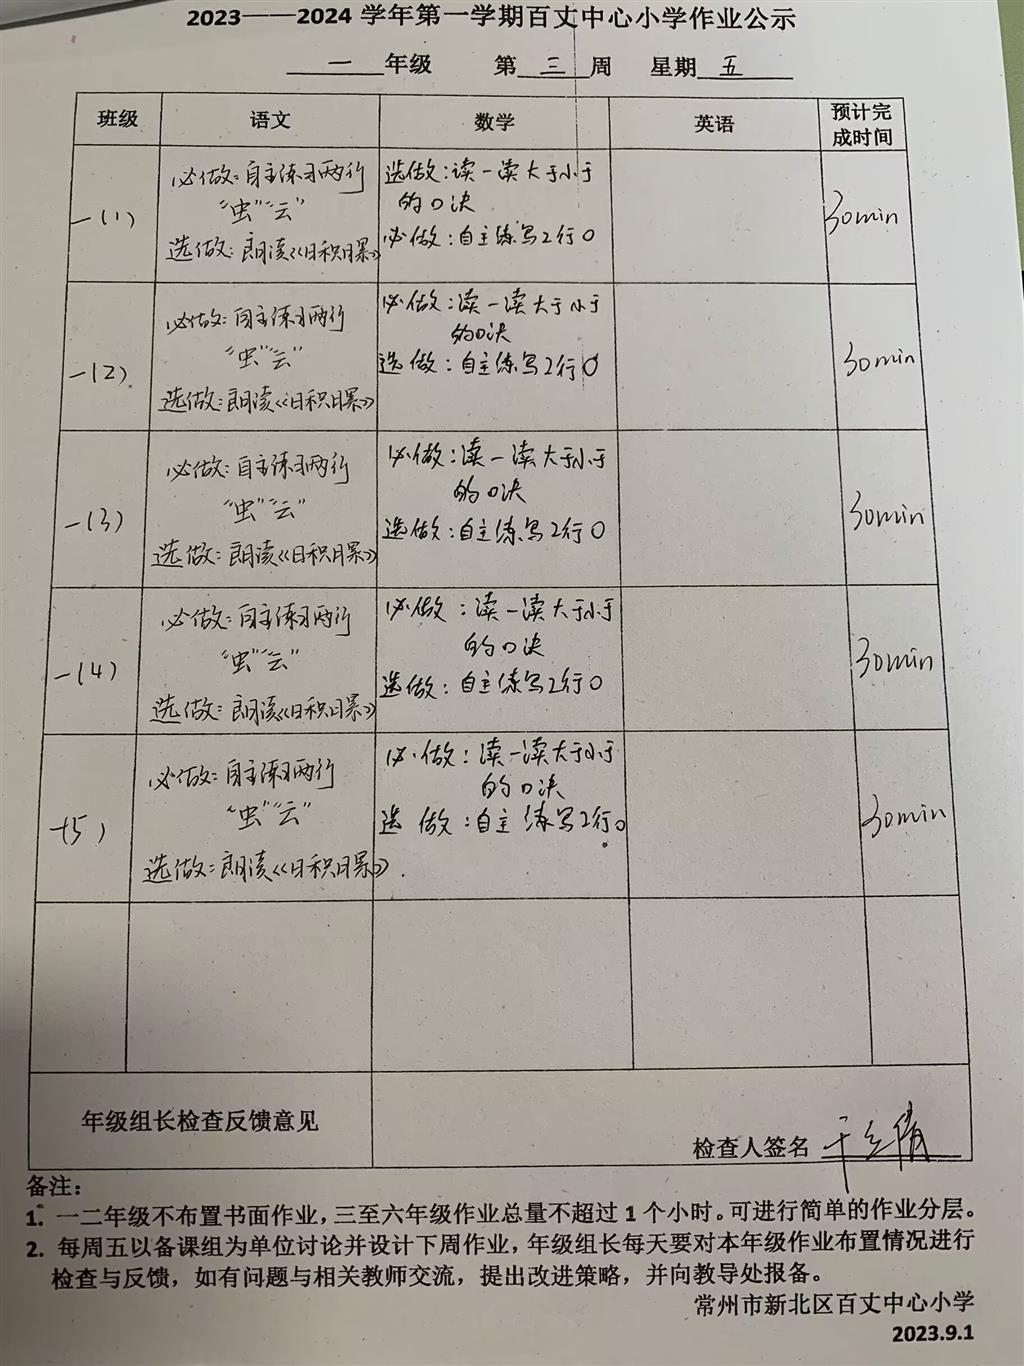 2023——2024 学年第一学期百丈中心小学作业公示
一 年级 第 三 周 星期 五
班级 语文 数学 英语 预计完成时间
一(1)
必做:自主练习两行
“虫”“云”
选做:朗读《日积月累》
选做:读一读大于小于
的口决
必做:自主练写2行0
30min
一(2)
必做:自主练习两行
“虫”“云”
选做:朗读《日积月累》
必做:读一读大于小于
的口决
选做:自主练写2行0
30min
一(3)
必做:自主练习两行
“虫”“云”
选做:朗读《日积月累》
必做:读一读大于小于
的口决
选做:自主练写2行0
30min
一(4)
必做:自主练习两行
“虫”“云”
选做:朗读《日积月累》
必做:读一读大于小于
的口决
选做:自主练写2行0
30min
一(5)
必做:自主练习两行
“虫”“云”
选做:朗读《日积月累》.
必做:读一读大于小于
的口决
选做:自主练写2行0
30min
年级组长检查反馈意见
检查人签名
备注:
1. 一二年级不布置书面作业,三至六年级作业总量不超过 1 个小时。可进行简单的作业分层。
2. 每周五以备课组为单位讨论并设计下周作业,年级组长每天要对本年级作业布置情况进行
检查与反馈,如有问题与相关教师交流,提出改进策略,并向教导处报备。
常州市新北区百丈中心小学
2023.9.1